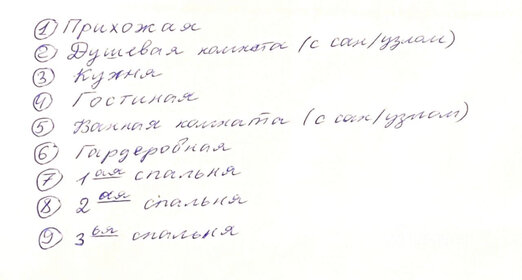 1 Прихожая
2 Душевая комната (с сан/узлом)
3 Кухня
4 Гостиная
5 Ванная комната (с сан/узлом)
6 Гардеробная
7 1ая спальня
8 2ая спальня
9 3ья спальня